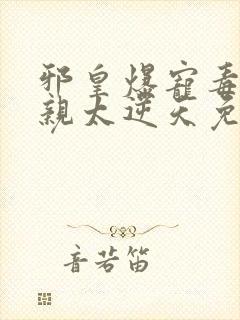 邪皇爆寵毒
親太逆天免
音若笛